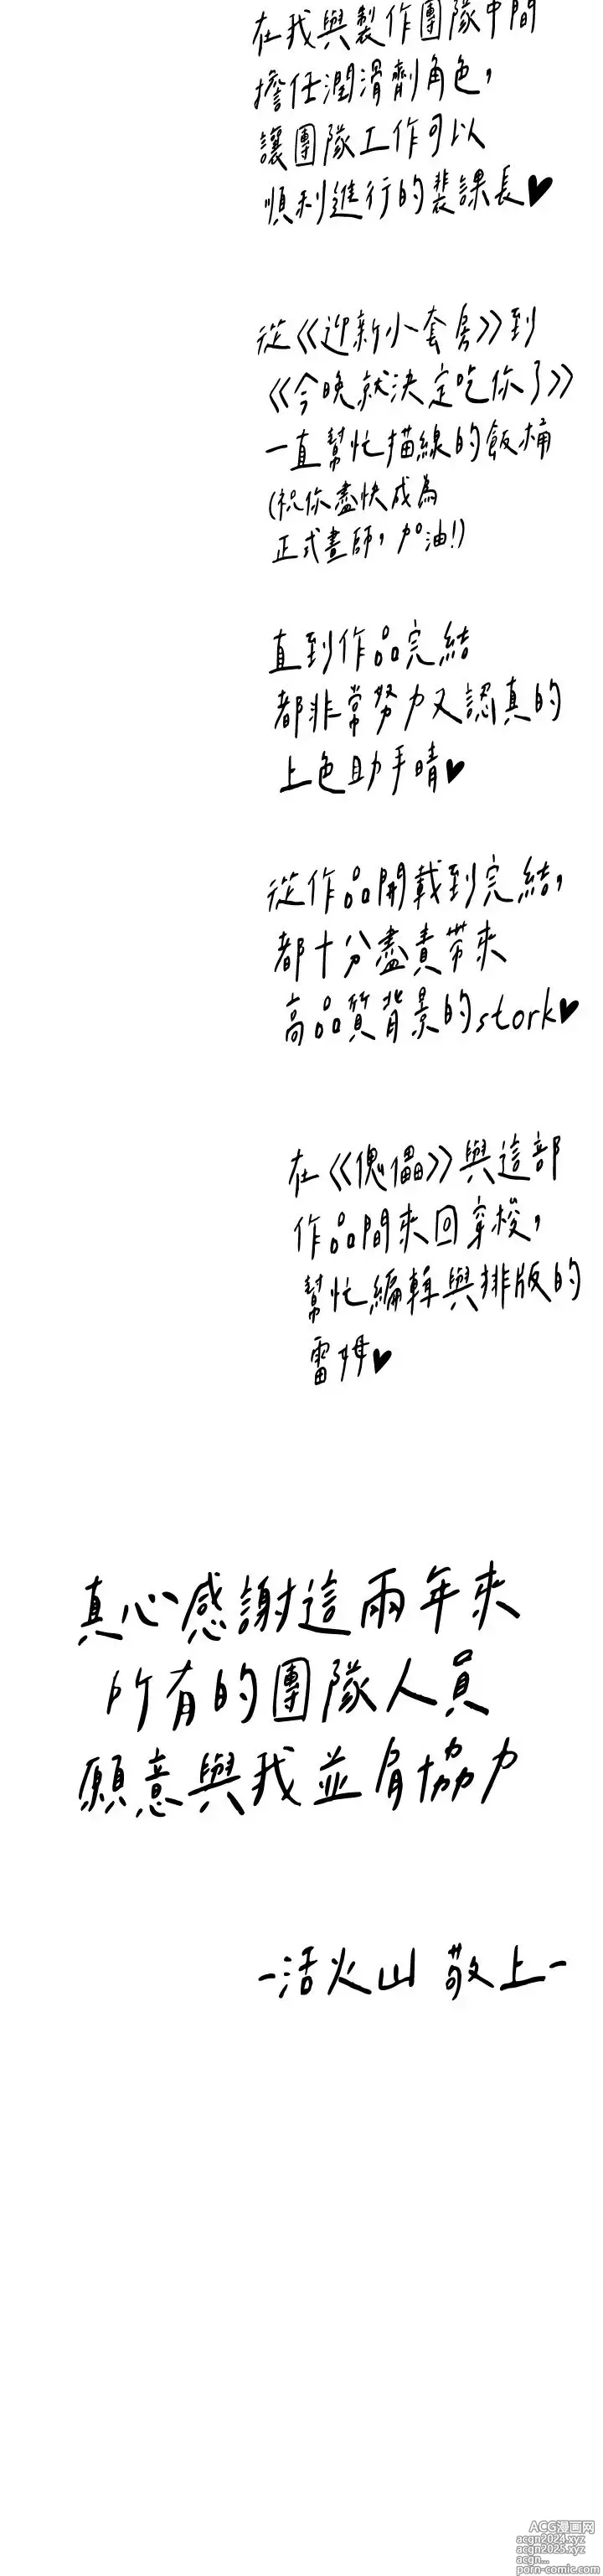 在我與製作團隊中間
擔任潤滑劑角色，
讓團隊工作可以
順利進行的裴課長♥
從《迎新小套房》到
《今晚就決定吃你了》
一直幫忙描線的飯桶
(祝你盡快成為
正式畫師，加油!)
直到作品完結
都非常努力又認真的
上色助手晴♥
從作品開載到完結，
都十分盡責帶來
高品質背景的stork♥
在《傀儡》與這部
作品間來回穿梭，
幫忙編輯與排版的
雷姆♥
真心感謝這兩年來
所有的團隊人員
願意與我並肩協力
-活火山 敬上-
ACG漫画网
acgn2024.xyz
acgn2025.xyz
acgn...
porn-comic.com